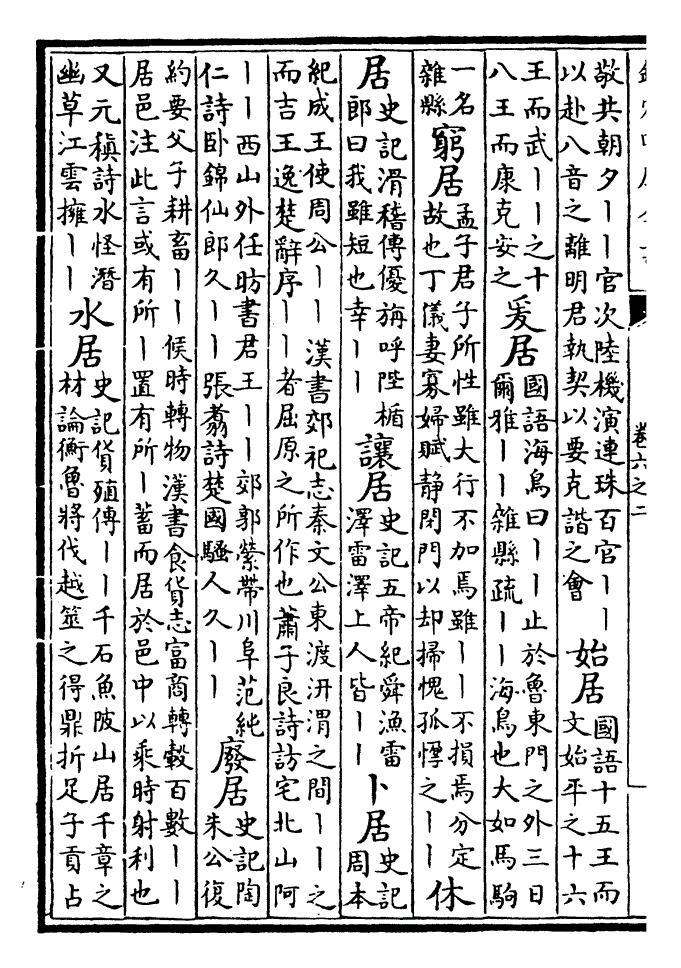 卷六之二
敬共朝夕丨丨官次陸機演連珠百官丨丨
以赴八音之離明君執契以要克諧之會
始居
國語十五王而
文始平之十六
王而武丨丨之十
八王而康克安之
爰居
國語海鳥曰丨丨止於魯東門之外三日
爾雅丨丨雜縣疏丨丨海鳥也大如馬駒
一名
雜縣
窮居
孟子君子所性雖大行不加焉雖丨丨不損焉分定
故也丁儀妻寡婦賦静閉門以却掃愧孤惸之丨丨
休
居
史記滑稽傳優旃呼陛楯
郎曰我雖短也幸丨丨
讓居
史記五帝紀舜漁雷
澤雷澤上人皆丨丨
卜居
史記
周本
紀成王使周公丨丨漢書郊祀志秦文公東渡汧渭之間丨丨之
而吉王逸楚辭序丨丨者屈原之所作也蕭子良詩訪宅北山阿
丨丨西山外任昉書君王丨丨郊郭縈帶川阜范純
仁詩卧錦仙郎久丨丨張翥詩楚國騷人久丨丨
廢居
史記陶
朱公復
約要父子耕畜丨丨候時轉物漢書食貨志富商轉轂百數丨丨
居邑注此言或有所丨置有所丨蓄而居於邑中以乘時射利也
又元稹詩水怪潛
幽草江雲擁丨丨
水居
史記貨殖傳丨丨千石魚陂山居千章之
材論衡魯將伐越筮之得鼎折足子貢占